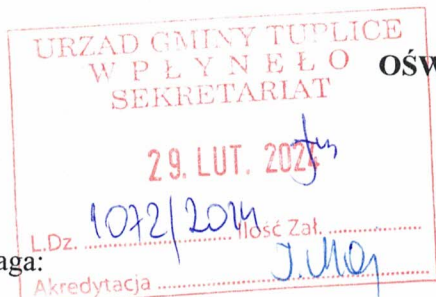 URZĄD GMINY TUPLICE
W P Ł Y N Ę Ł O
SEKRETARIAT
OŚW
29. LUT. 2024
L.Dz. 1072/2024 Ilość Zał.
aga:
Akredytacja